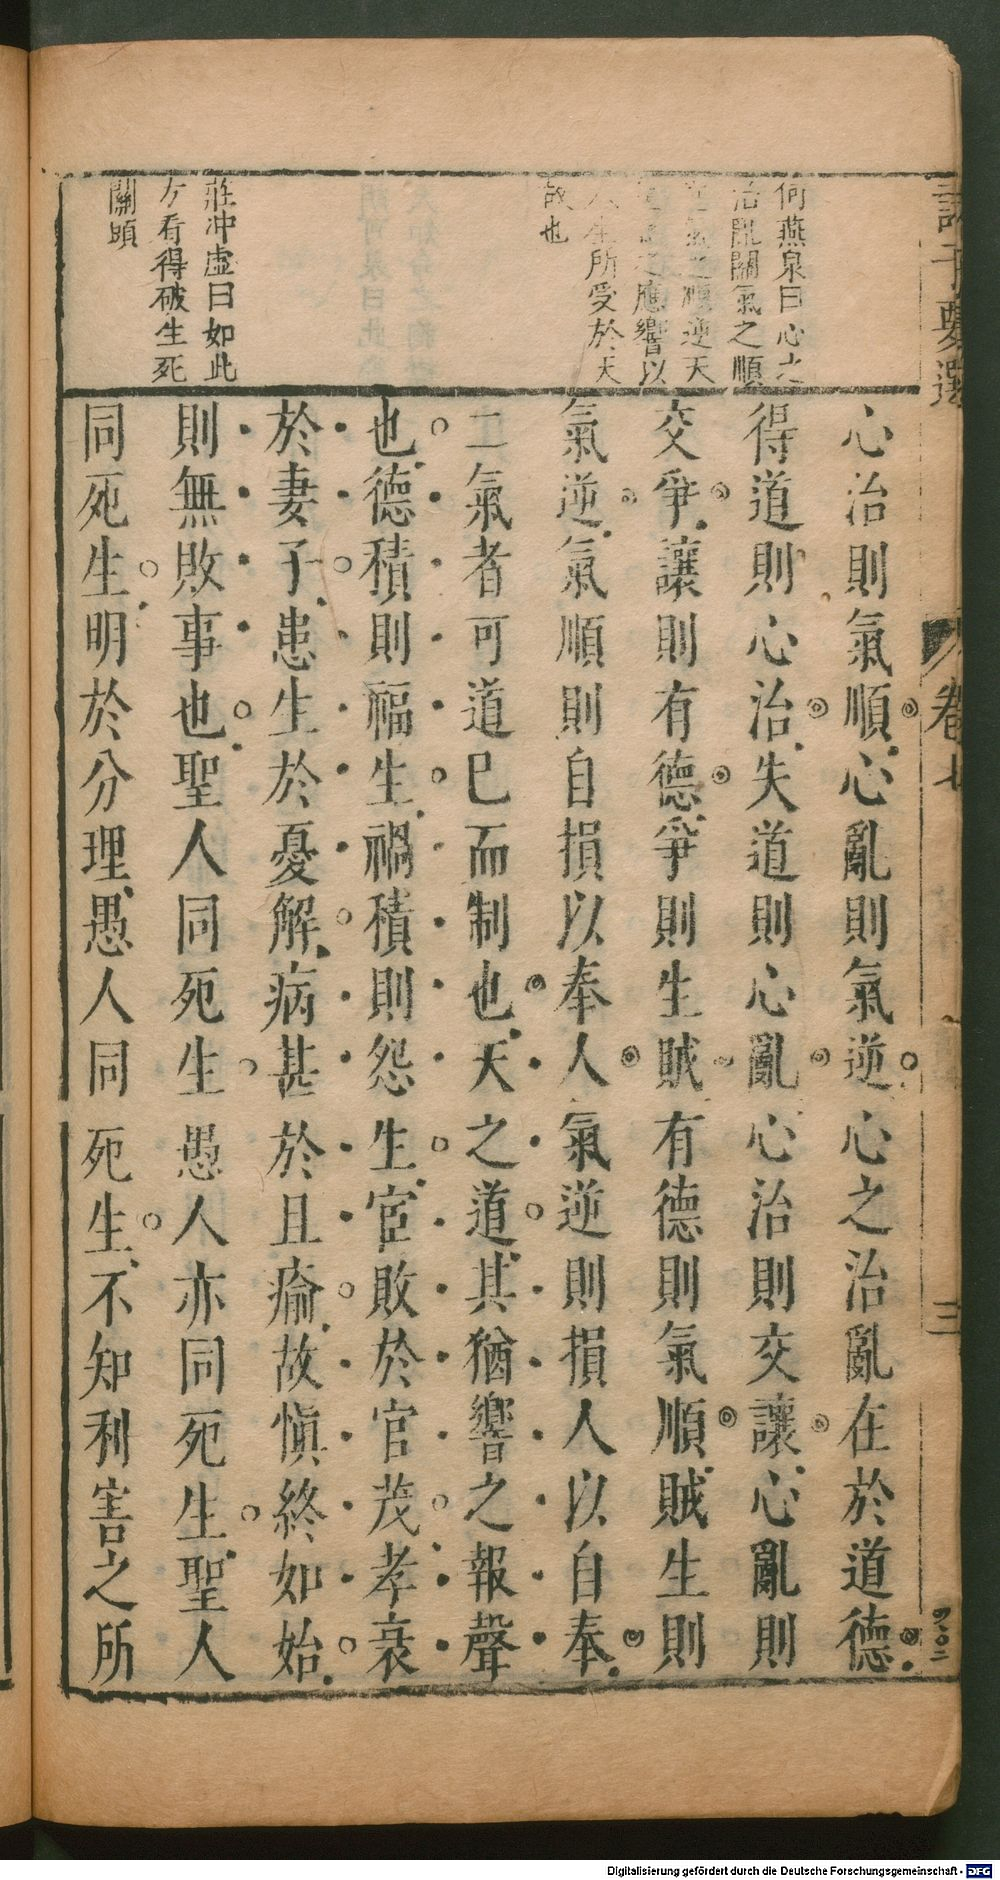 何燕泉曰心之
治亂關氣之順
逆氣之順逆天
之應響以
人生所受於天
故也
莊冲虛曰如此
方看得破生死
關頭
心治則氣順心亂則氣逆心之治亂在於道德
得道則心治失道則心亂心治則交讓心亂則
交爭讓則有德爭則生賊有德則氣順賊生則
氣逆氣順則自損以奉人氣逆則損人以自奉
二氣者可道已而制也天之道其猶響之報聲
也德積則福生禍積則怨生宦敗於官茂孝衰
於妻子患生於憂解病甚於且瘉故慎終如始
則無敗事也聖人同死生愚人亦同死生聖人
同死生明於分理愚人同死生不知利害之所
卷七
三
四〇二
Digitalisierung gefördert durch die Deutsche Forschungsgemeinschaft - DFG